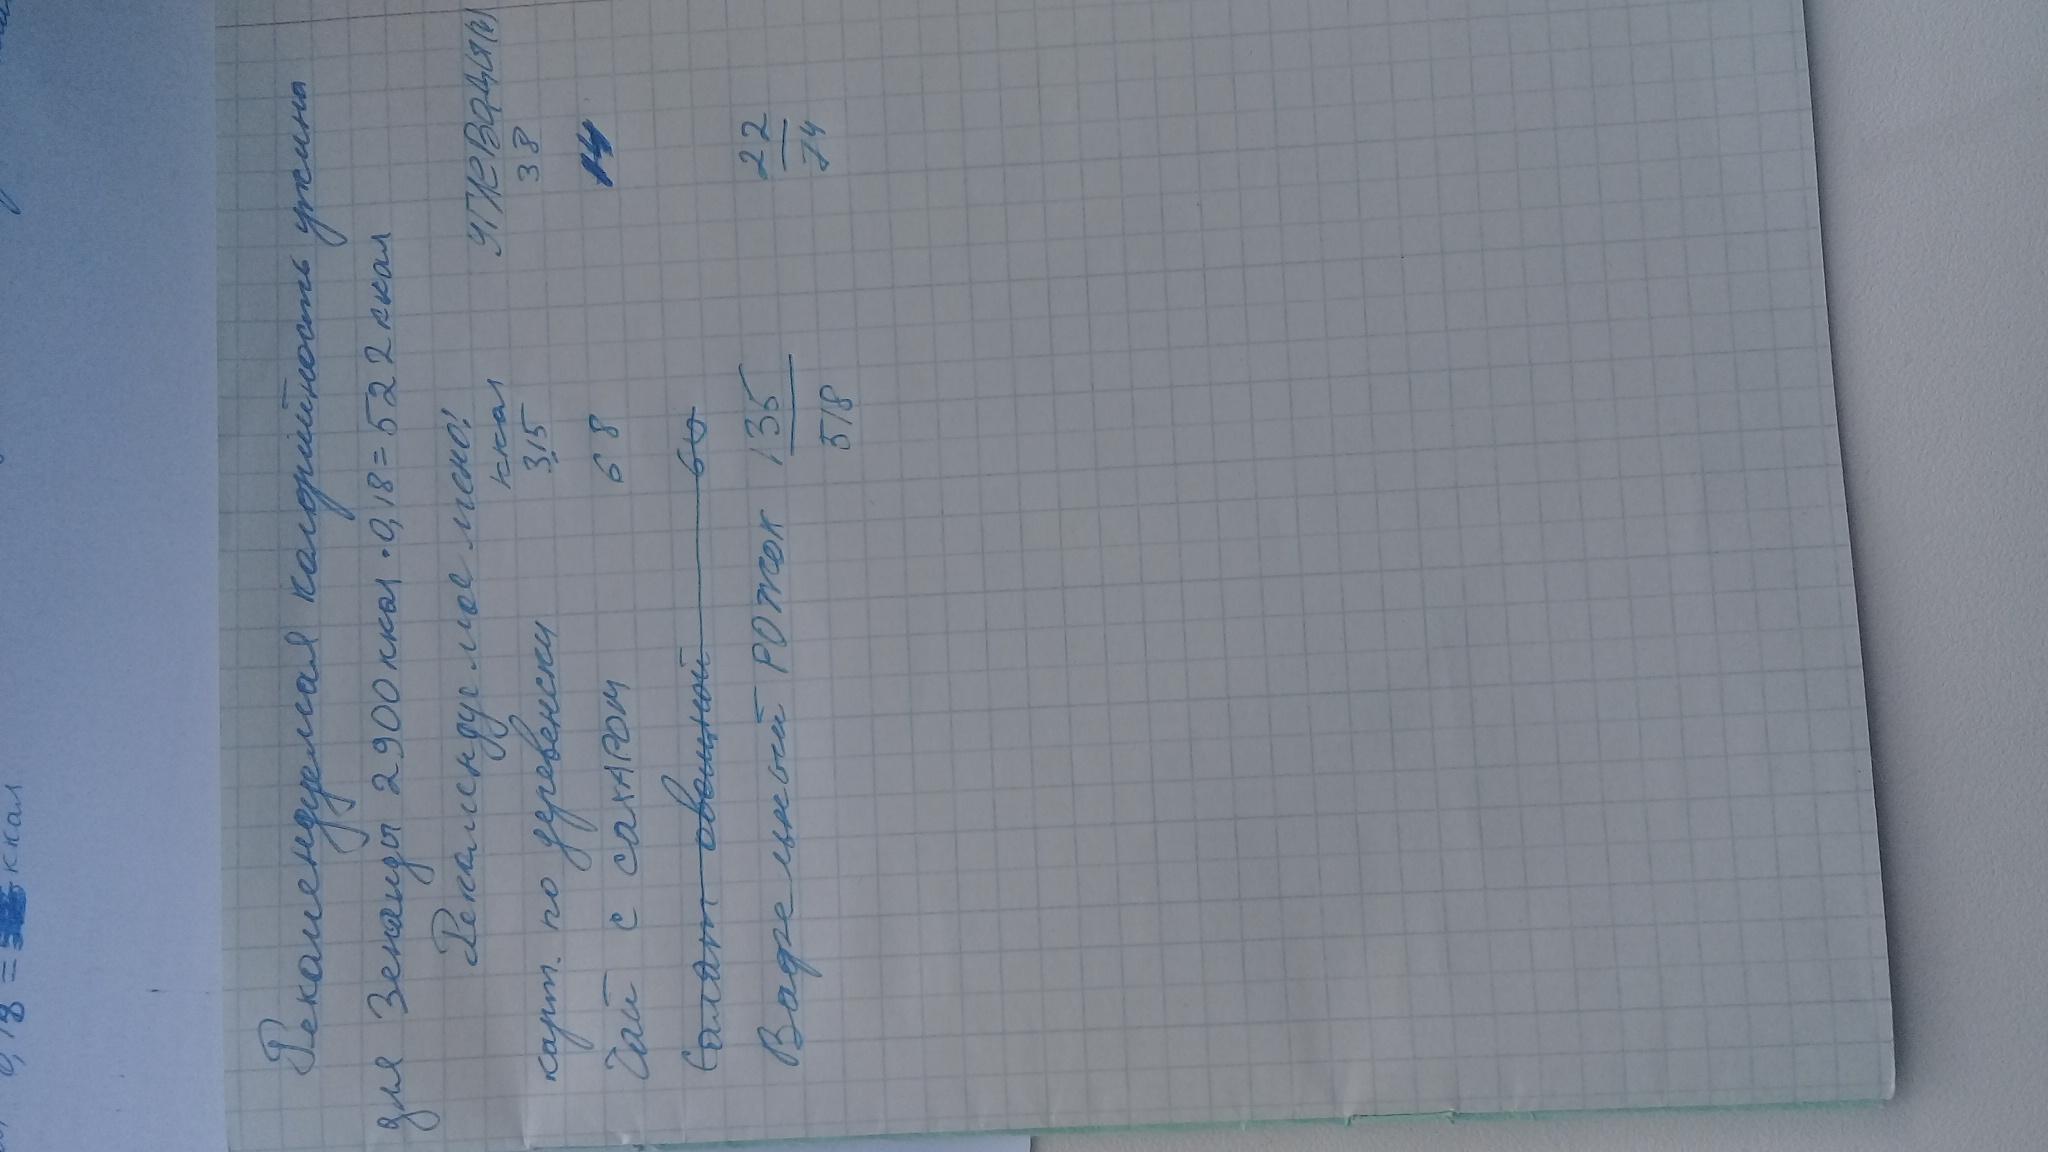 Рекомендуемая калорийность ужина
для Зенаиды 2900 ккал · 0,18 = 522 ккал
Рекомендуемое меню:
ккал углеводы(г)
карт. по деревенски 315 38
Чай с сахаром 68 14
Салат овощной 60
Вафельный РОжок 135 22
518 74
0,18 = ккал